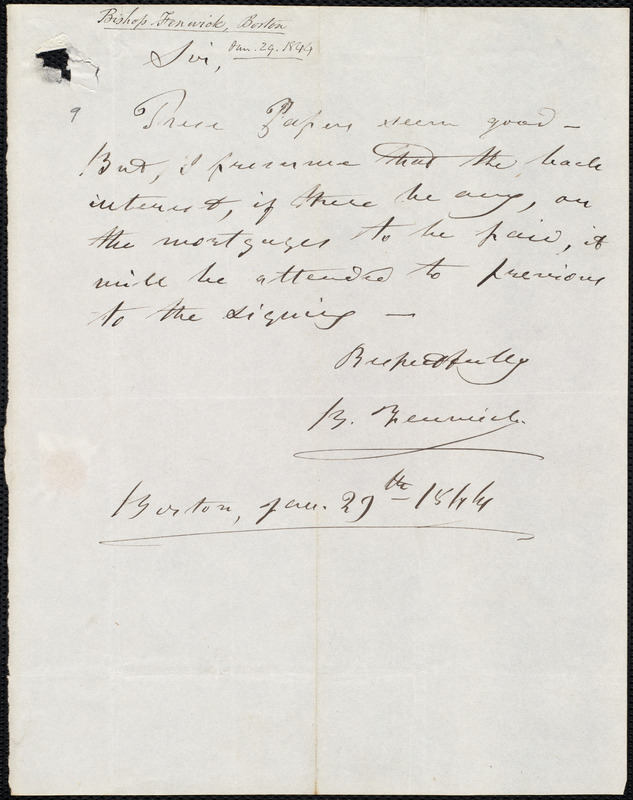 Bishop Fenwick, Boston
Jan. 29. 1844
Sir,
9
These Papers seem good —
But, I presume that the back
interest, if there be any, on
the mortgages to be paid, it
will be attended to previous
to the signing —
Respectfully
B. Fenwick.
Boston, Jan. 29th 1844